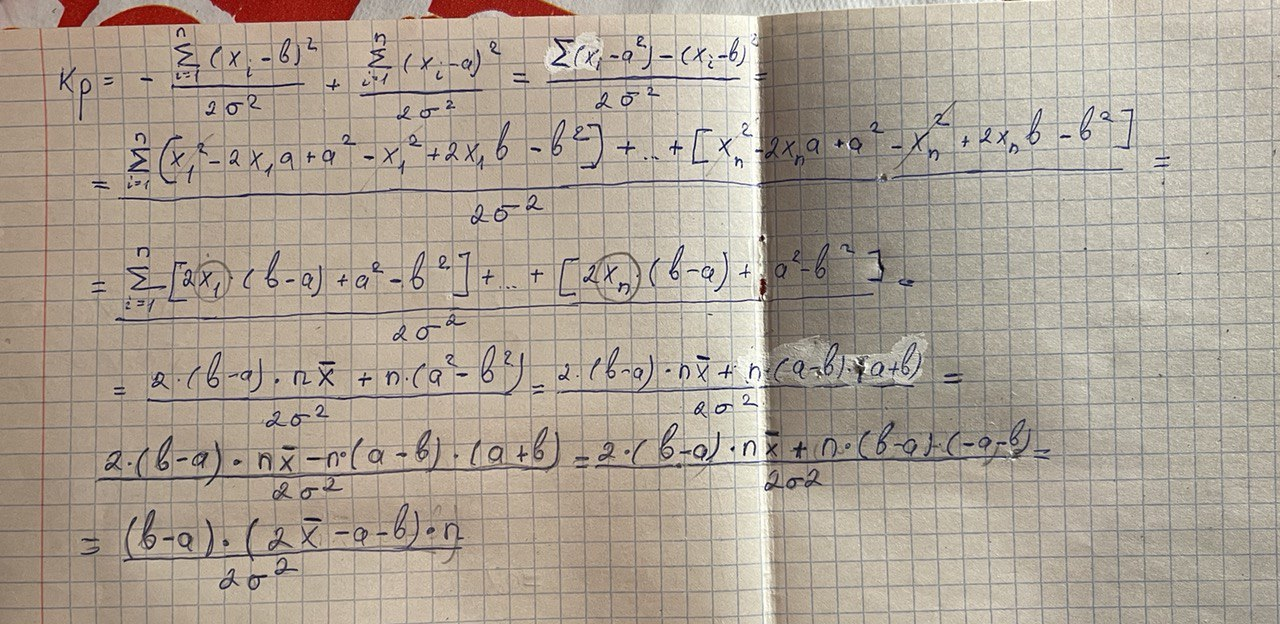 Kp = - \frac{\sum_{i=1}^{n} (x_i - в)^2}{2σ^2} + \frac{\sum_{i=1}^{n} (x_i - a)^2}{2σ^2} = \frac{\sum (x_i - a^2) - (x_i - в)^2}{2σ^2} =
= \frac{\sum_{i=1}^{n} (x_1^2 - 2x_1 a + a^2 - x_1^2 + 2x_1 в - в^2]) + ... + [x_n^2 - 2x_n a + a^2 - x_n^2 + 2x_n в - в^2]}{2σ^2} =
= \frac{\sum_{i=1}^{n} [2x_1 (в-a) + a^2 - в^2] + ... + [2x_n (в-a) + a^2 - в^2]}{2σ^2} =
= \frac{2·(в-a)·n\bar{x} + n·(a^2 - в^2)}{2σ^2} = \frac{2·(в-a)·n\bar{x} + n·(a-в)·(a+в)}{2σ^2} =
\frac{2·(в-a)·n\bar{x} - n·(a-в)·(a+в)}{2σ^2} = \frac{2·(в-a)·n\bar{x} + n·(в-a)·(-a-в)}{2σ2} =
= \frac{(в-a)·(2\bar{x} - a - в)·n}{2σ^2}